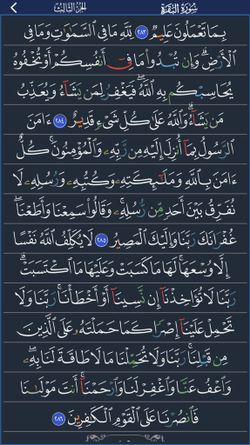 الجزء الثالث سورة البقرة
بِمَا تَعْمَلُونَ عَلِيمٌ ۝٢٨٣ لِّلَّهِ مَا فِي السَّمَٰوَٰتِ وَمَا فِي
الْأَرْضِ ۗ وَإِن تُبْدُوا مَا فِي أَنفُسِكُمْ أَوْ تُخْفُوهُ
يُحَاسِبْكُم بِهِ اللَّهُ ۖ فَيَغْفِرُ لِمَن يَشَاءُ وَيُعَذِّبُ
مَن يَشَاءُ ۗ وَاللَّهُ عَلَىٰ كُلِّ شَيْءٍ قَدِيرٌ ۝٢٨٤ ءَامَنَ
الرَّسُولُ بِمَا أُنزِلَ إِلَيْهِ مِن رَّبِّهِ وَالْمُؤْمِنُونَ ۚ كُلٌّ
ءَامَنَ بِاللَّهِ وَمَلَٰئِكَتِهِ وَكُتُبِهِ وَرُسُلِهِ لَا
نُفَرِّقُ بَيْنَ أَحَدٍ مِّن رُّسُلِهِ ۚ وَقَالُوا سَمِعْنَا وَأَطَعْنَا ۖ
غُفْرَانَكَ رَبَّنَا وَإِلَيْكَ الْمَصِيرُ ۝٢٨٥ لَا يُكَلِّفُ اللَّهُ نَفْسًا
إِلَّا وُسْعَهَا ۚ لَهَا مَا كَسَبَتْ وَعَلَيْهَا مَا اكْتَسَبَتْ ۗ
رَبَّنَا لَا تُؤَاخِذْنَا إِن نَّسِينَا أَوْ أَخْطَأْنَا ۚ رَبَّنَا وَلَا
تَحْمِلْ عَلَيْنَا إِصْرًا كَمَا حَمَلْتَهُ عَلَى الَّذِينَ
مِن قَبْلِنَا ۚ رَبَّنَا وَلَا تُحَمِّلْنَا مَا لَا طَاقَةَ لَنَا بِهِ ۖ
وَاعْفُ عَنَّا وَاغْفِرْ لَنَا وَارْحَمْنَا ۚ أَنتَ مَوْلَىٰنَا
فَانصُرْنَا عَلَى الْقَوْمِ الْكَٰفِرِينَ ۝٢٨٦